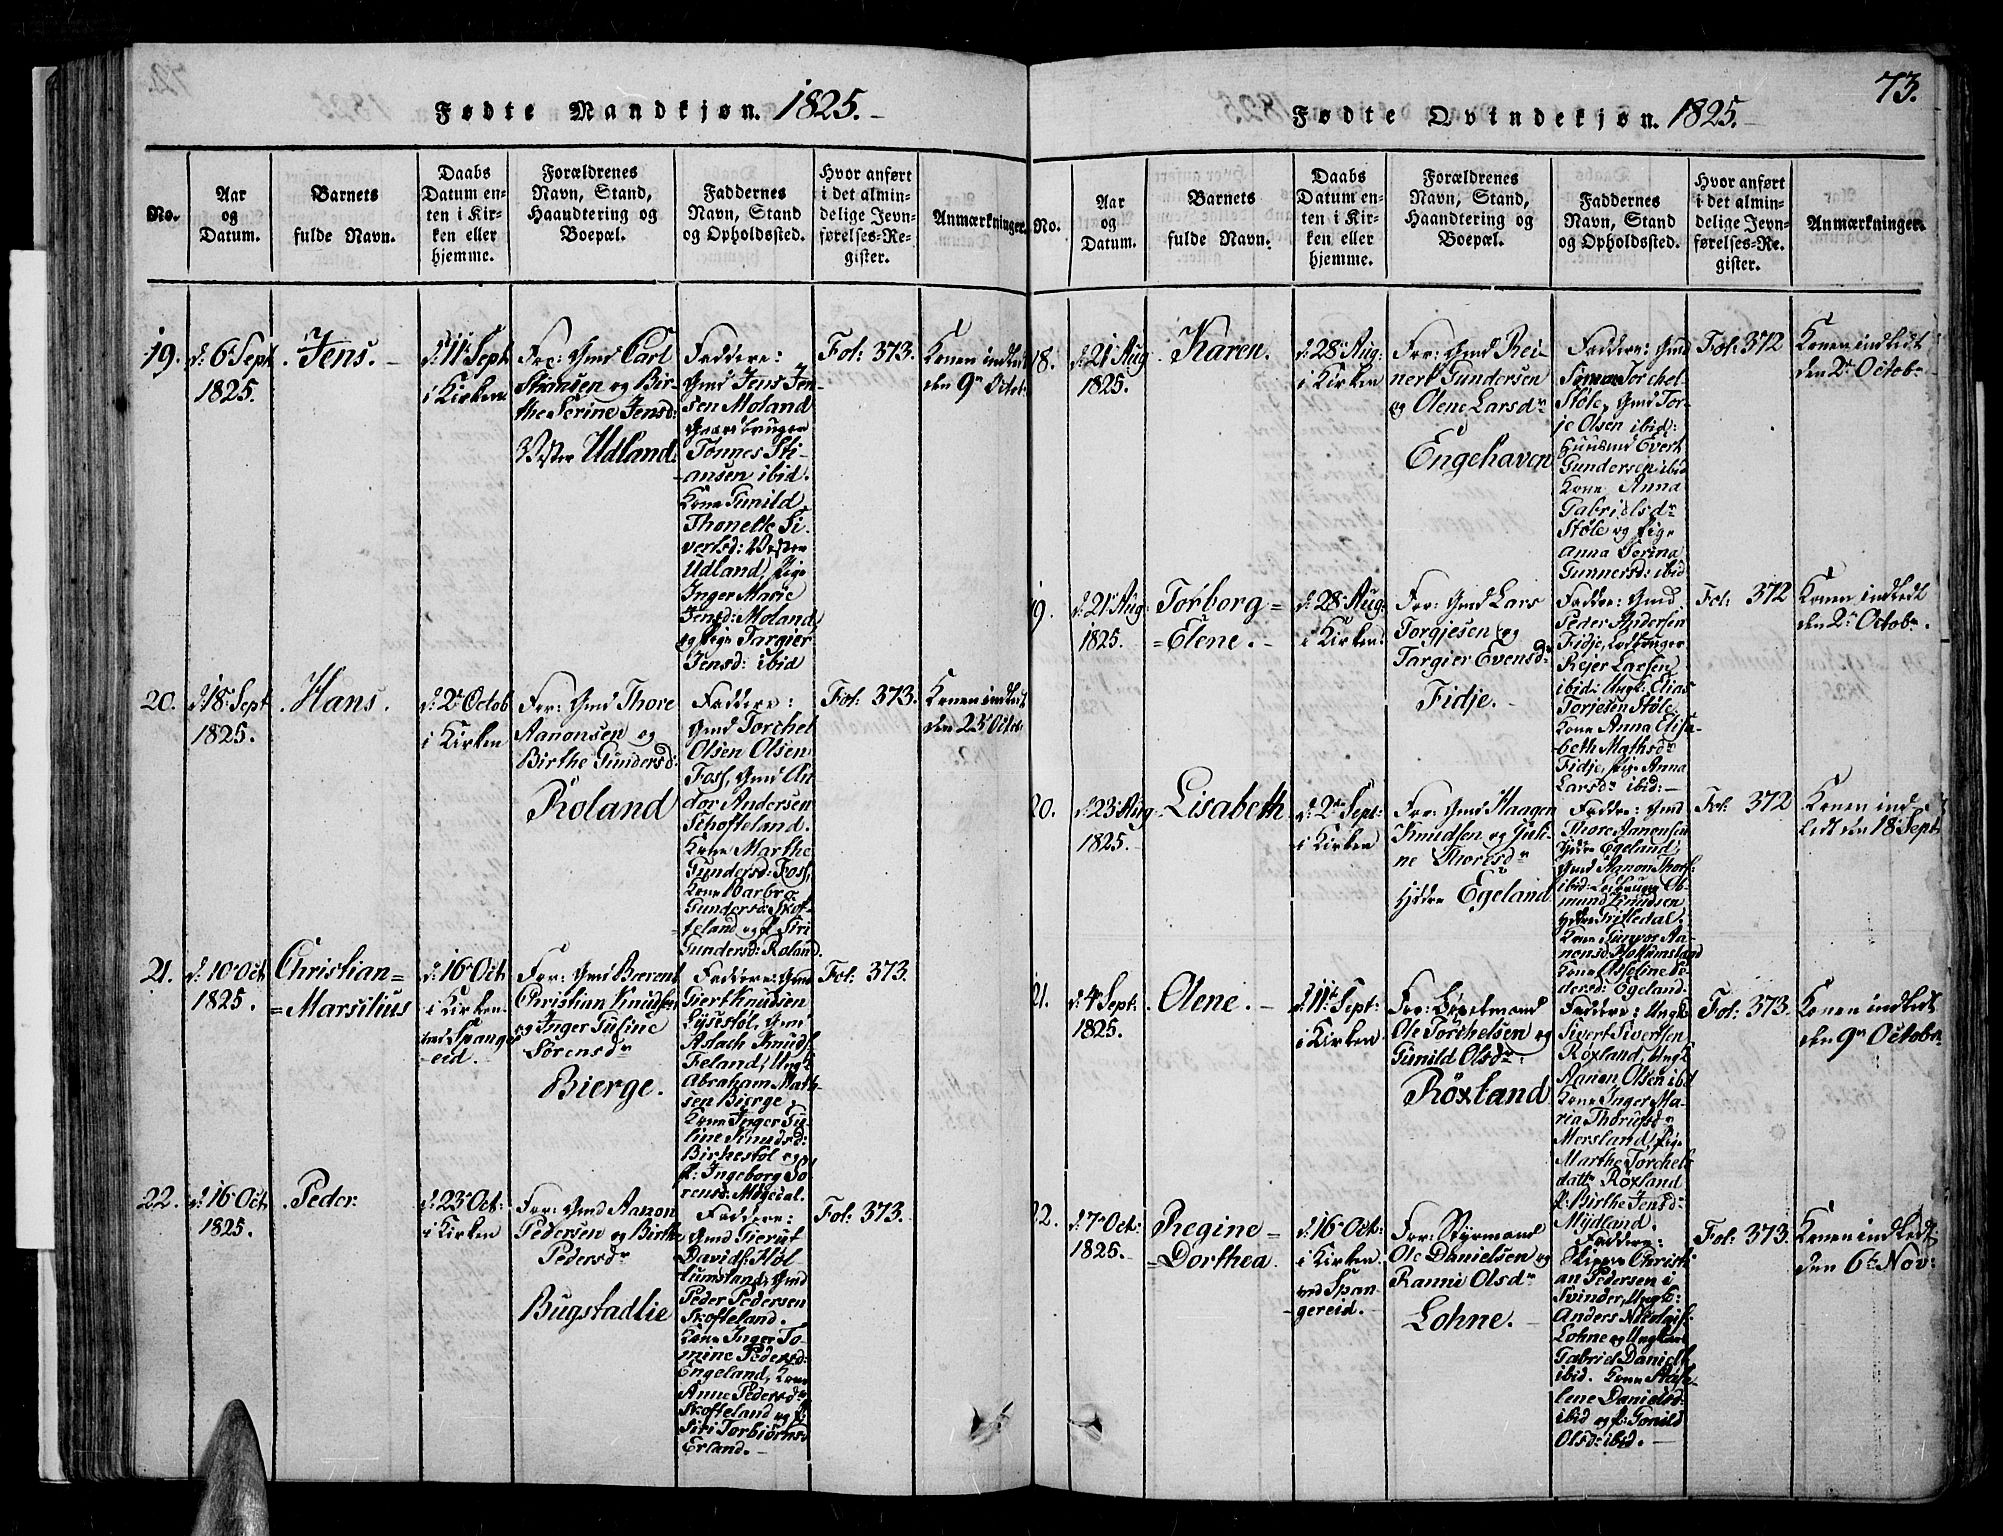 Fødte Mandkjøn. 1825.
No.
Aar
og
Datum.
Barnets
fulde Navn.
Daabs
Datum en-
ten i Kir-
ken eller
hjemme.
Forældrenes
Navn, Stand,
Haandtering og
Boepæl.
Faddernes
Navn, Stand
og Opholdssted.
Hvor anført
i det almin-
delige Jevn-
førelses-Re-
gister.
Anmærkninger.
19.
d: 6 Sept
1825.
Jens.
d: 11 Sept
i Kirken
For: Gmd Carl
Stiansen og Bir-
the Serine Jensd:
Vster Udland.
Faddere:
Gmd Jens Jen-
sen Moland
Gaardbruger
Tønnes Sti-
ansen ibid.
Kone Gunild
Thonette Si-
vertsd: Vester
Udland, Pige
Inger Marie
Jensd: Moland
og Pige Targier
Jensd: ibid
Fol: 373.
Konen indledt
den 9de Octob:
20.
d: 18 Sept
1825.
Hans.
d: 2de Octob
i Kirken
For: Gmd Thore
Aanonsen og
Birthe Gundersd:
Roland
Faddere:
Gmd Torchel
Olsen Olsen
Foss, Gmd An-
dor Andersen
Schofteland.
Kone Marthe
Gundersd: Foss,
Kone Barbro
Gundersd: Skof-
teland og p. Siri
Gundersd: Roland.
Fol: 373.
Konen indledt
den 23de Octob:
21.
d: 10 Oct
1825.
Christian=
=Marsilius
d: 16 Oct
i Kirken
ved Spang-
eid.
For: Gmd Berent
Christian Knudsen
og Inger Guline
Sørensdr
Bierge.
Faddere: Gmd
Giert Knudsen
Lysestøl, Gmd
Aslach Knuds:
Feland, Ungk:
Abraham Math-
sen Bierge,
Kone Inger Gu-
line Knudsd:
Birkestøl og
p. Ingeborg Sø-
rensd: Møgedal.
Fol: 373.
22.
d: 16 Oct
1825.
Peder
d: 23 Oct:
i Kirken
For: Gmd Aanon
Pedersen og Birthe
Pedersdr
Bugstadlie
Faddere:
Gmd Gierut
Davids: Høl
lumsland, Gmd
Peder Pedersen
Skofteland.
Kone Inger To-
mine Pedersd:
Engeland, Kone
Anne Pedersdr
Skofteland og p.
Siri Torbiørnsd
Erland.
Fol: 373.
73.
Fødte Qvindekjøn. 1825.
No.
Aar
og
Datum.
Barnets
fulde Navn.
Daabs
Datum en-
ten i Kir-
ken eller
hjemme.
Forældrenes
Navn, Stand,
Haandtering og
Boepæl.
Faddernes
Navn, Stand
og Opholdssted.
Hvor anført
i det almin-
delige Jevn-
førelses-Re-
gister.
Anmærkninger.
18.
d: 21 Aug
1825.
Karen.
d: 28 Aug:
i Kirken
For: Gmd Rei-
nert Gundersen
og Olene Larsdr
Engehaven
Faddere: Gmd
Simon Torchel
Støle, Gmd Tor-
je Olsen ibid:
Huusmd Evert
Gundersen ibid
Kone Anna
Gabrielsdr
Støle og Pige
Anna Serina
Gunnersd: ibid
Fol: 372
Konen indledt
den 2de Octobr
19.
d: 21 Aug:
1825.
Torborg=
=Elene.
d: 28 Aug:
i Kirken.
For: Gmd Lars
Torgjesen og
Targier Evensdr
Fidje.
Faddre: Gmd
Peder Andersen
Fidje, Ledbruger
Rejer Larsen
ibid: Ungk: Elias
Torjesen Støle
Kone Anna Elisa-
beth Mathsdr
Fidje, Pige Anna
Larsdr ibid:
Fol: 372
Konen indledt
den 2de Octobr.
20.
d: 23 Aug
1825.
Lisabeth
d: 2de Sept:
i Kirken
For: Gmd Haagen
Knudsen og Guli-
ne Thoresdr
Hydre Egeland
Faddere: Gmd
Thore Aanensen
Hydre Egeland,
Gmd Aanon Thors:
ibid: Ledbruger Os-
mund Knudsen
ydre Tritledal.
Kone Gunvor Aa-
nensd:
Kone Asseline Pe-
dersd: Egeland.
Fol: 372
Konen ind-
ledt den 18 Sept
21.
d: 4 Sept:
1825.
Olene.
d: 11 Sept:
i Kirken
Ole Torchelsen og
Gunild Olsdr
Röxland
Faddere: Ungk:
Sivert Sivertsen
Röxland, Ungk:
Aanon Olsen ibd
Kone Inger Ma-
ria Thorersdr
Mersland, Pige
Marthe Torchels
dattr Röxland
p: Birthe Jensd:
Mydland.
Fol: 373.
Konen indledt
den 9de Octobr.
22.
d: 7de Oct:
1825.
Regine=
=Dorthea.
d: 16 Oct:
i Kirken
ved Span-
gereid.
For: Styrmand
Ole Danielsen og
Ranni Olsdr
Lohne.
Faddere:
Skipper Christi-
an Pedersen i
Svinder, Ungk:
Anders Nicolais:
Lohne og Ungkarl
Gabriel Daniels:
ibid. Kone
lene Danielsd:
ibid og p: Gonild
Olsd: ibid.
Fol: 373.
Konen indledt
den 6te Nov: